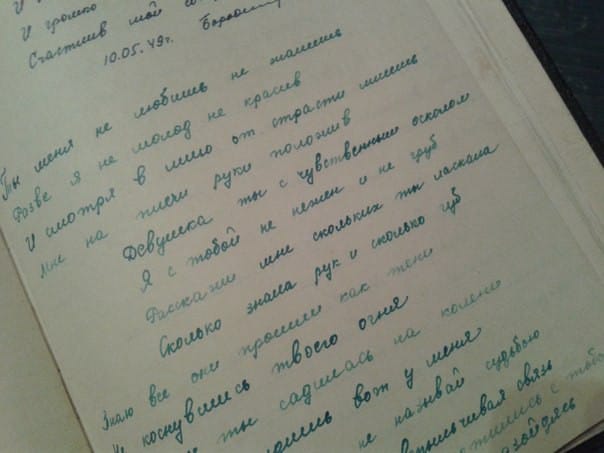 И громко
Счастлив мой
10.05.49г.
Ты меня не любишь не жалеешь
Розве я не молод не красив
И смотря в лицо от страсти млеешь
Мне на плечи руки положив
Девушка ты с чувственным осколом
Я с тобой не нежен и не груб
Расскажи мне скольких ты ласкала
Сколько знала рук и сколько губ
Знаю все они прошли как тени
Не коснувшись твоего огня
ты садилась на колени
вот у меня
не назвай судьбою
связь
с тобою